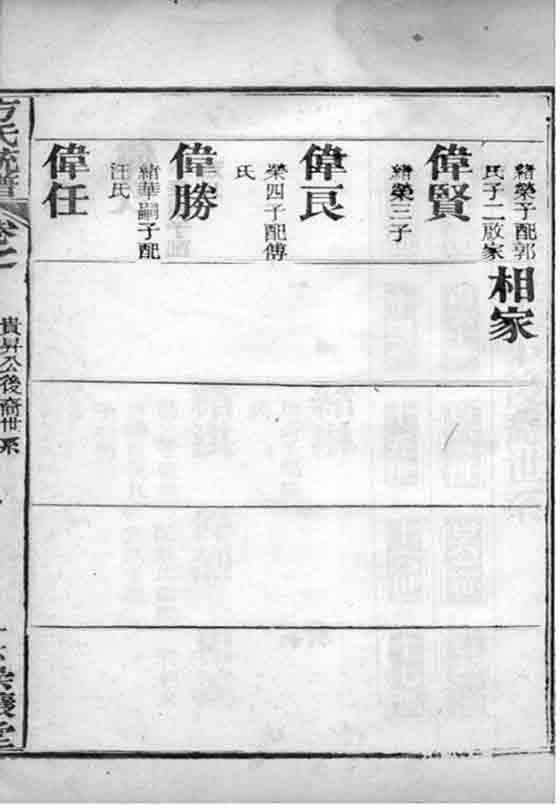 緒榮子配郭
氏子二啟家
相家
偉賢
緒榮三子
偉良
榮四子配傅
氏
偉勝
緒華嗣子配
汪氏
偉任
方氏統譜
卷之
貴昇公後裔世系